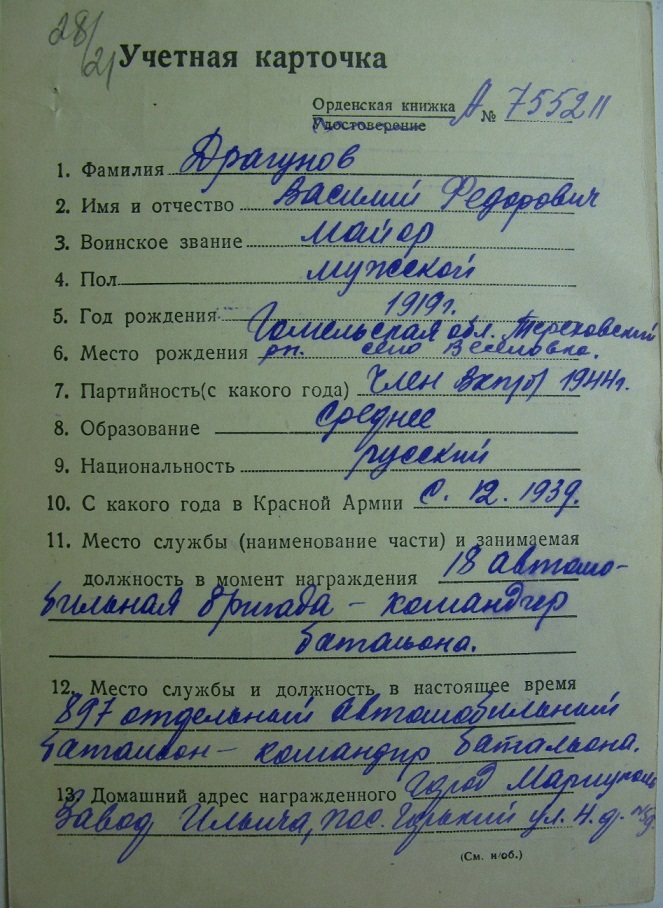 28/21
Учетная карточка
Орденская книжка А № 755211
Удостоверение
1. Фамилия Драгунов
2. Имя и отчество Василий Федорович
3. Воинское звание майор
4. Пол мужской
5. Год рождения 1919г.
Гомельская обл. Тереховский
6. Место рождения рн. село Веселовка.
7. Партийность(с какого года) Член вкп(б) 1944г.
8. Образование среднее
9. Национальность русский
10. С какого года в Красной Армии с. 12. 1939.
11. Место службы (наименование части) и занимаемая
должность в момент награждения 18 автомо-
бильная бригада – командир
батальона.
12. Место службы и должность в настоящее время
897 отдельный автомобильный
батальон – командир батальона.
13. Домашний адрес награжденного город Мариуполь
Завод Ильича, пос. Горький ул. 4. д.
(См. н/об.)